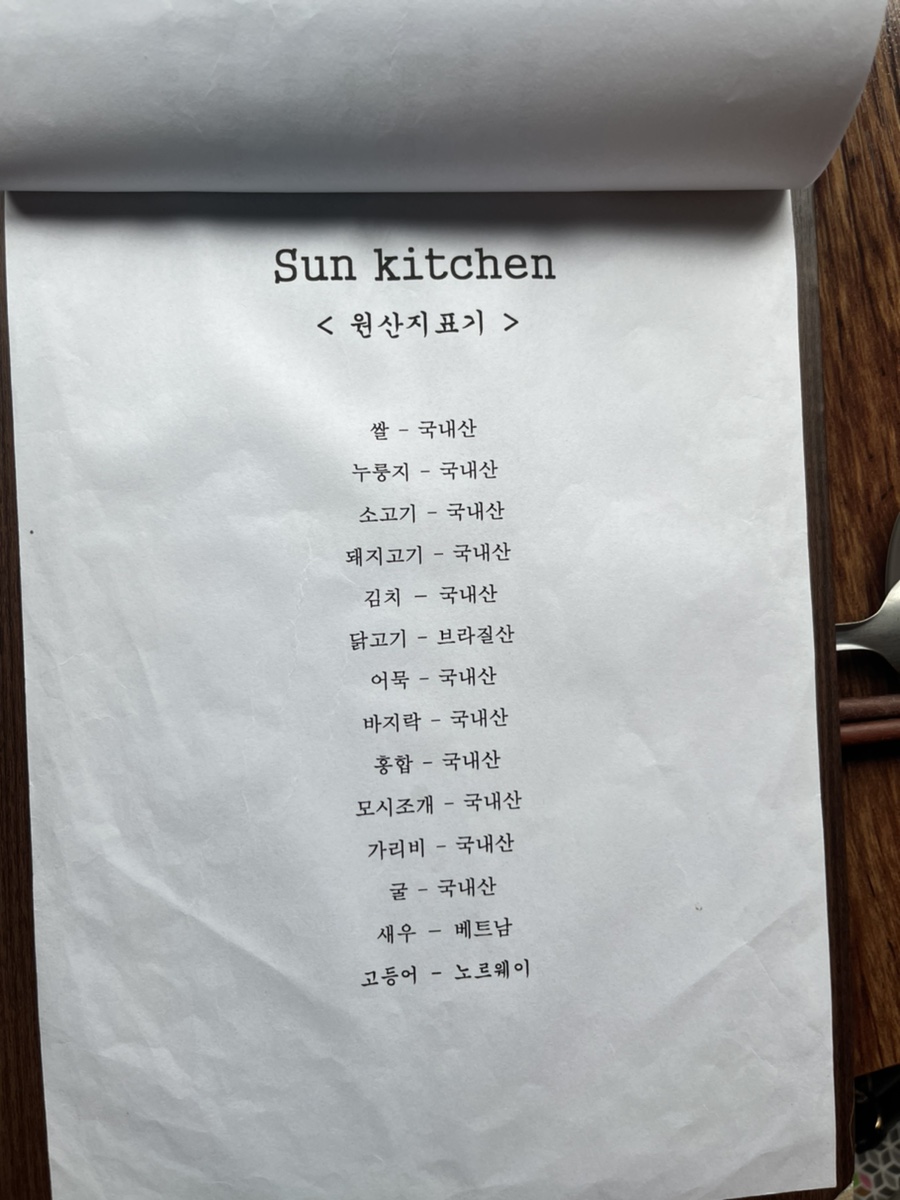 Sun kitchen
< 원산지표기 >
쌀 - 국내산
누룽지 - 국내산
소고기 - 국내산
돼지고기 - 국내산
김치 - 국내산
닭고기 - 브라질산
어묵 - 국내산
바지락 - 국내산
홍합 - 국내산
모시조개 - 국내산
가리비 - 국내산
굴 - 국내산
새우 - 베트남
고등어 - 노르웨이